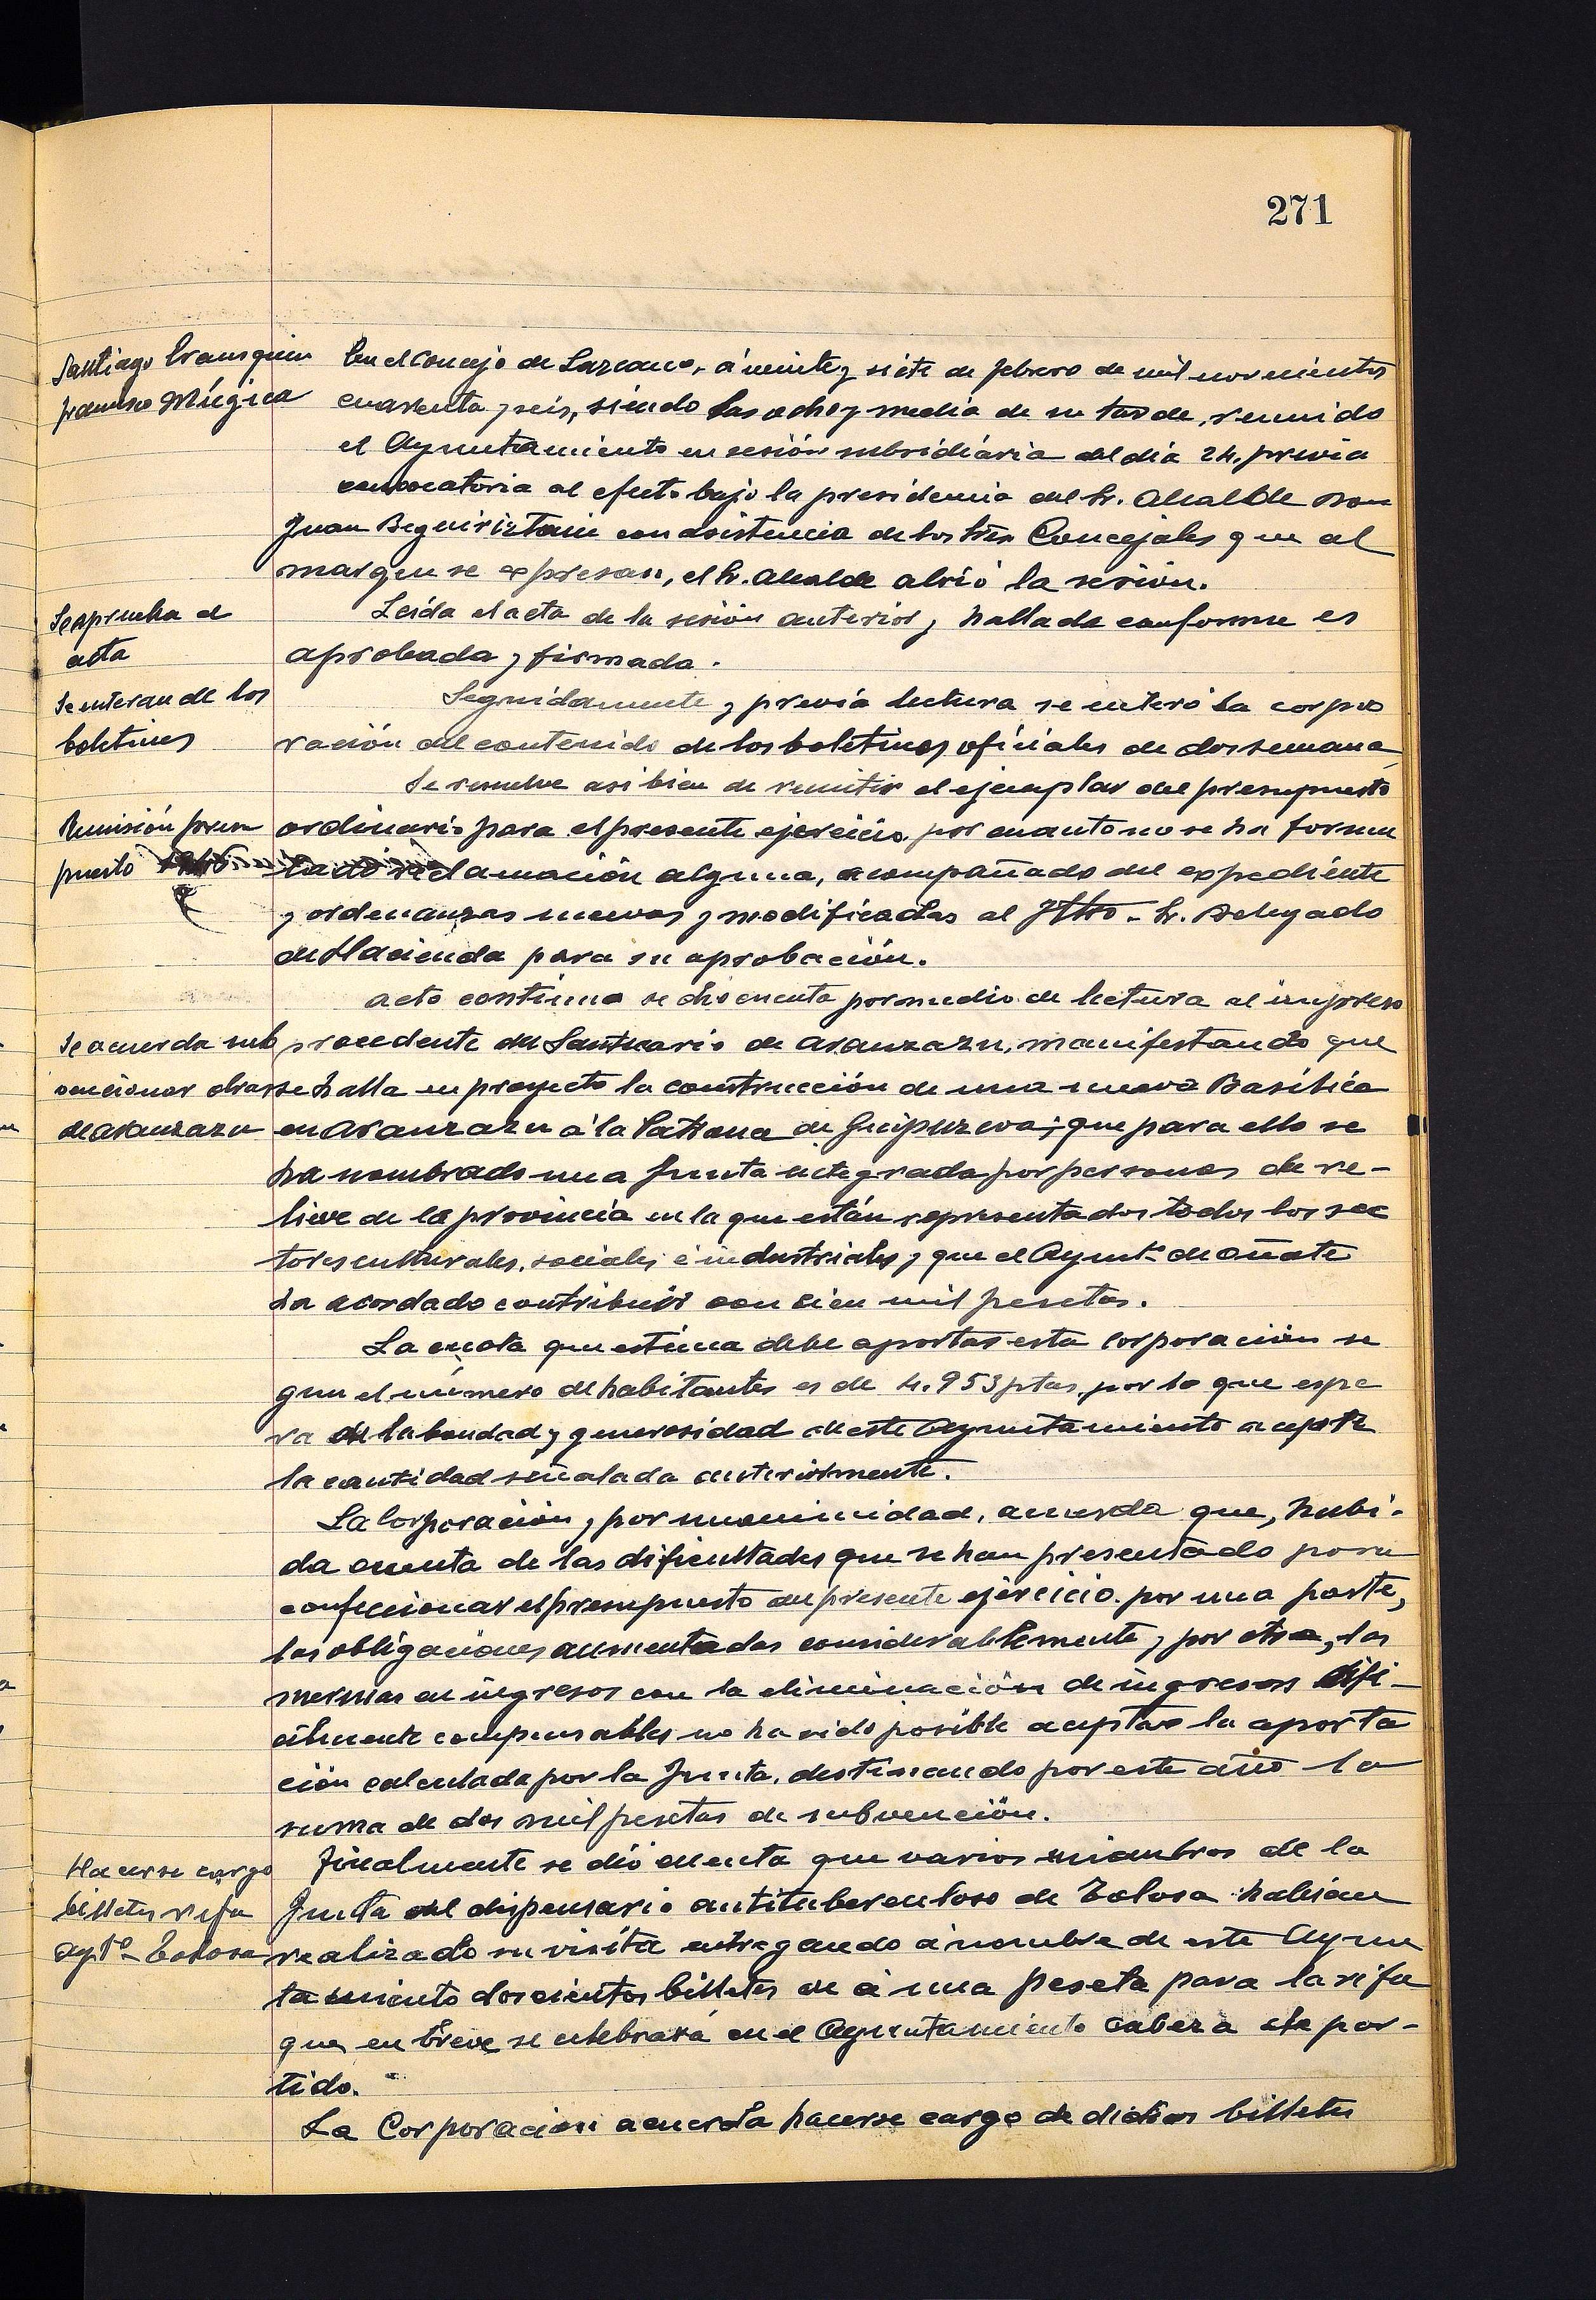 271
Santiago Iransguin
Francisco Múgica
En el Concejo de Lazcano, á veinte y siete de febrero de mil novecientos
cuarenta y seis, siendo las ocho y media de su tarde, reunido
el Ayuntamiento en sesión subsidiaria del dia 24, previa
convocatoria al efecto bajo la presidencia del Sr. Alcalde Don
Juan Beguiristain con asistencia de los Sres Concejales que al
margen se expresan, el Sr. Alcalde abrió la sesión.
Se aprueba el
acta
Leida el acta de la sesión anterior y hallada conforme es
aprobada y firmada.
Se enteran de los
boletines
Seguidamente y previa lectura se enteró la corpo
ración del contenido de los boletines oficiales de dos semana
Se resuelve asi bien de remitir el ejemplar del presupuesto
Remisión presu
puesto
ordinario para el presente ejercicio, por cuanto no se ha formu
lado reclamación alguna, acompañado del expediente
y ordenanzas nuevas y modificadas al Iltmo. Sr. Delegado
de Hacienda para su aprobación.
Acto continuo se dio cuenta por medio de lectura al impreso
Se acuerda sub
vencionar obras
de Aranzazu
procedente del Santuario de Aranzazu, manifestando que
se halla en proyecto la construcción de una nueva Basílica
en Aranzazu á la Patrona de Guipuzcoa; que para ello se
ha nombrado una Junta integrada por personas de re-
lieve de la provincia en la que están representados todos los sec
tores culturales, sociales é industriales y que el Ayunt.º de Oñate
ha acordado contribuir con cien mil pesetas.
La cuota que estima debe aportar esta corporación se
gun el número de habitantes es de 4.953 ptas, por lo que espe
ra de la bondad y generosidad de este Ayuntamiento acepte
la cantidad señalada anteriormente.
La Corporación, por unanimidad, acuerda que, habi-
da cuenta de las dificultades que se han presentado para
confeccionar el presupuesto del presente ejercicio. por una parte,
las obligaciones aumentadas considerablemente y por otra, las
mermas en ingresos con la eliminación de ingresos difi-
cilmente compensables no ha sido posible aceptar la aporta
ción calculada por la Junta, destinando por este año la
suma de dos mil pesetas de subvención.
Hacerse cargo
billetes rifa
Aytº Tolosa
Finalmente se dió cuenta que varios miembros de la
Junta del dispensario antituberculoso de Tolosa habian
realizado su visita entregando á nombre de este Ayun
tamiento doscientos billetes de á una peseta para la rifa
que en breve se celebrará en el Ayuntamiento cabeza de par-
tido.
La Corporación acuerda hacerse cargo de dichos billetes